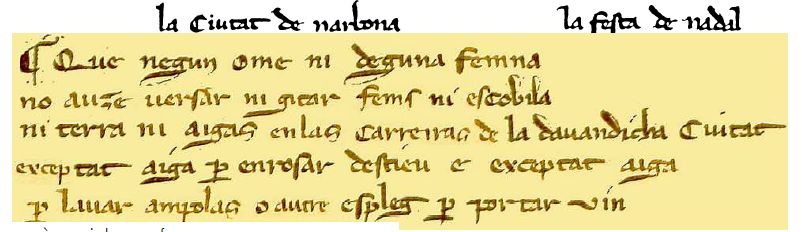 la Ciutat de narbona la festa de nadal
¶ Que negun ome ni deguna femna
no auze versar ni gitar fems ni escobila
ni terra ni aigas en las Carreiras de la davandicha Ciutat
exceptat aiga ꝑ enrosar destieu e exceptat aiga
ꝑ lavar ampolas o autre espleg ꝑ portar vin